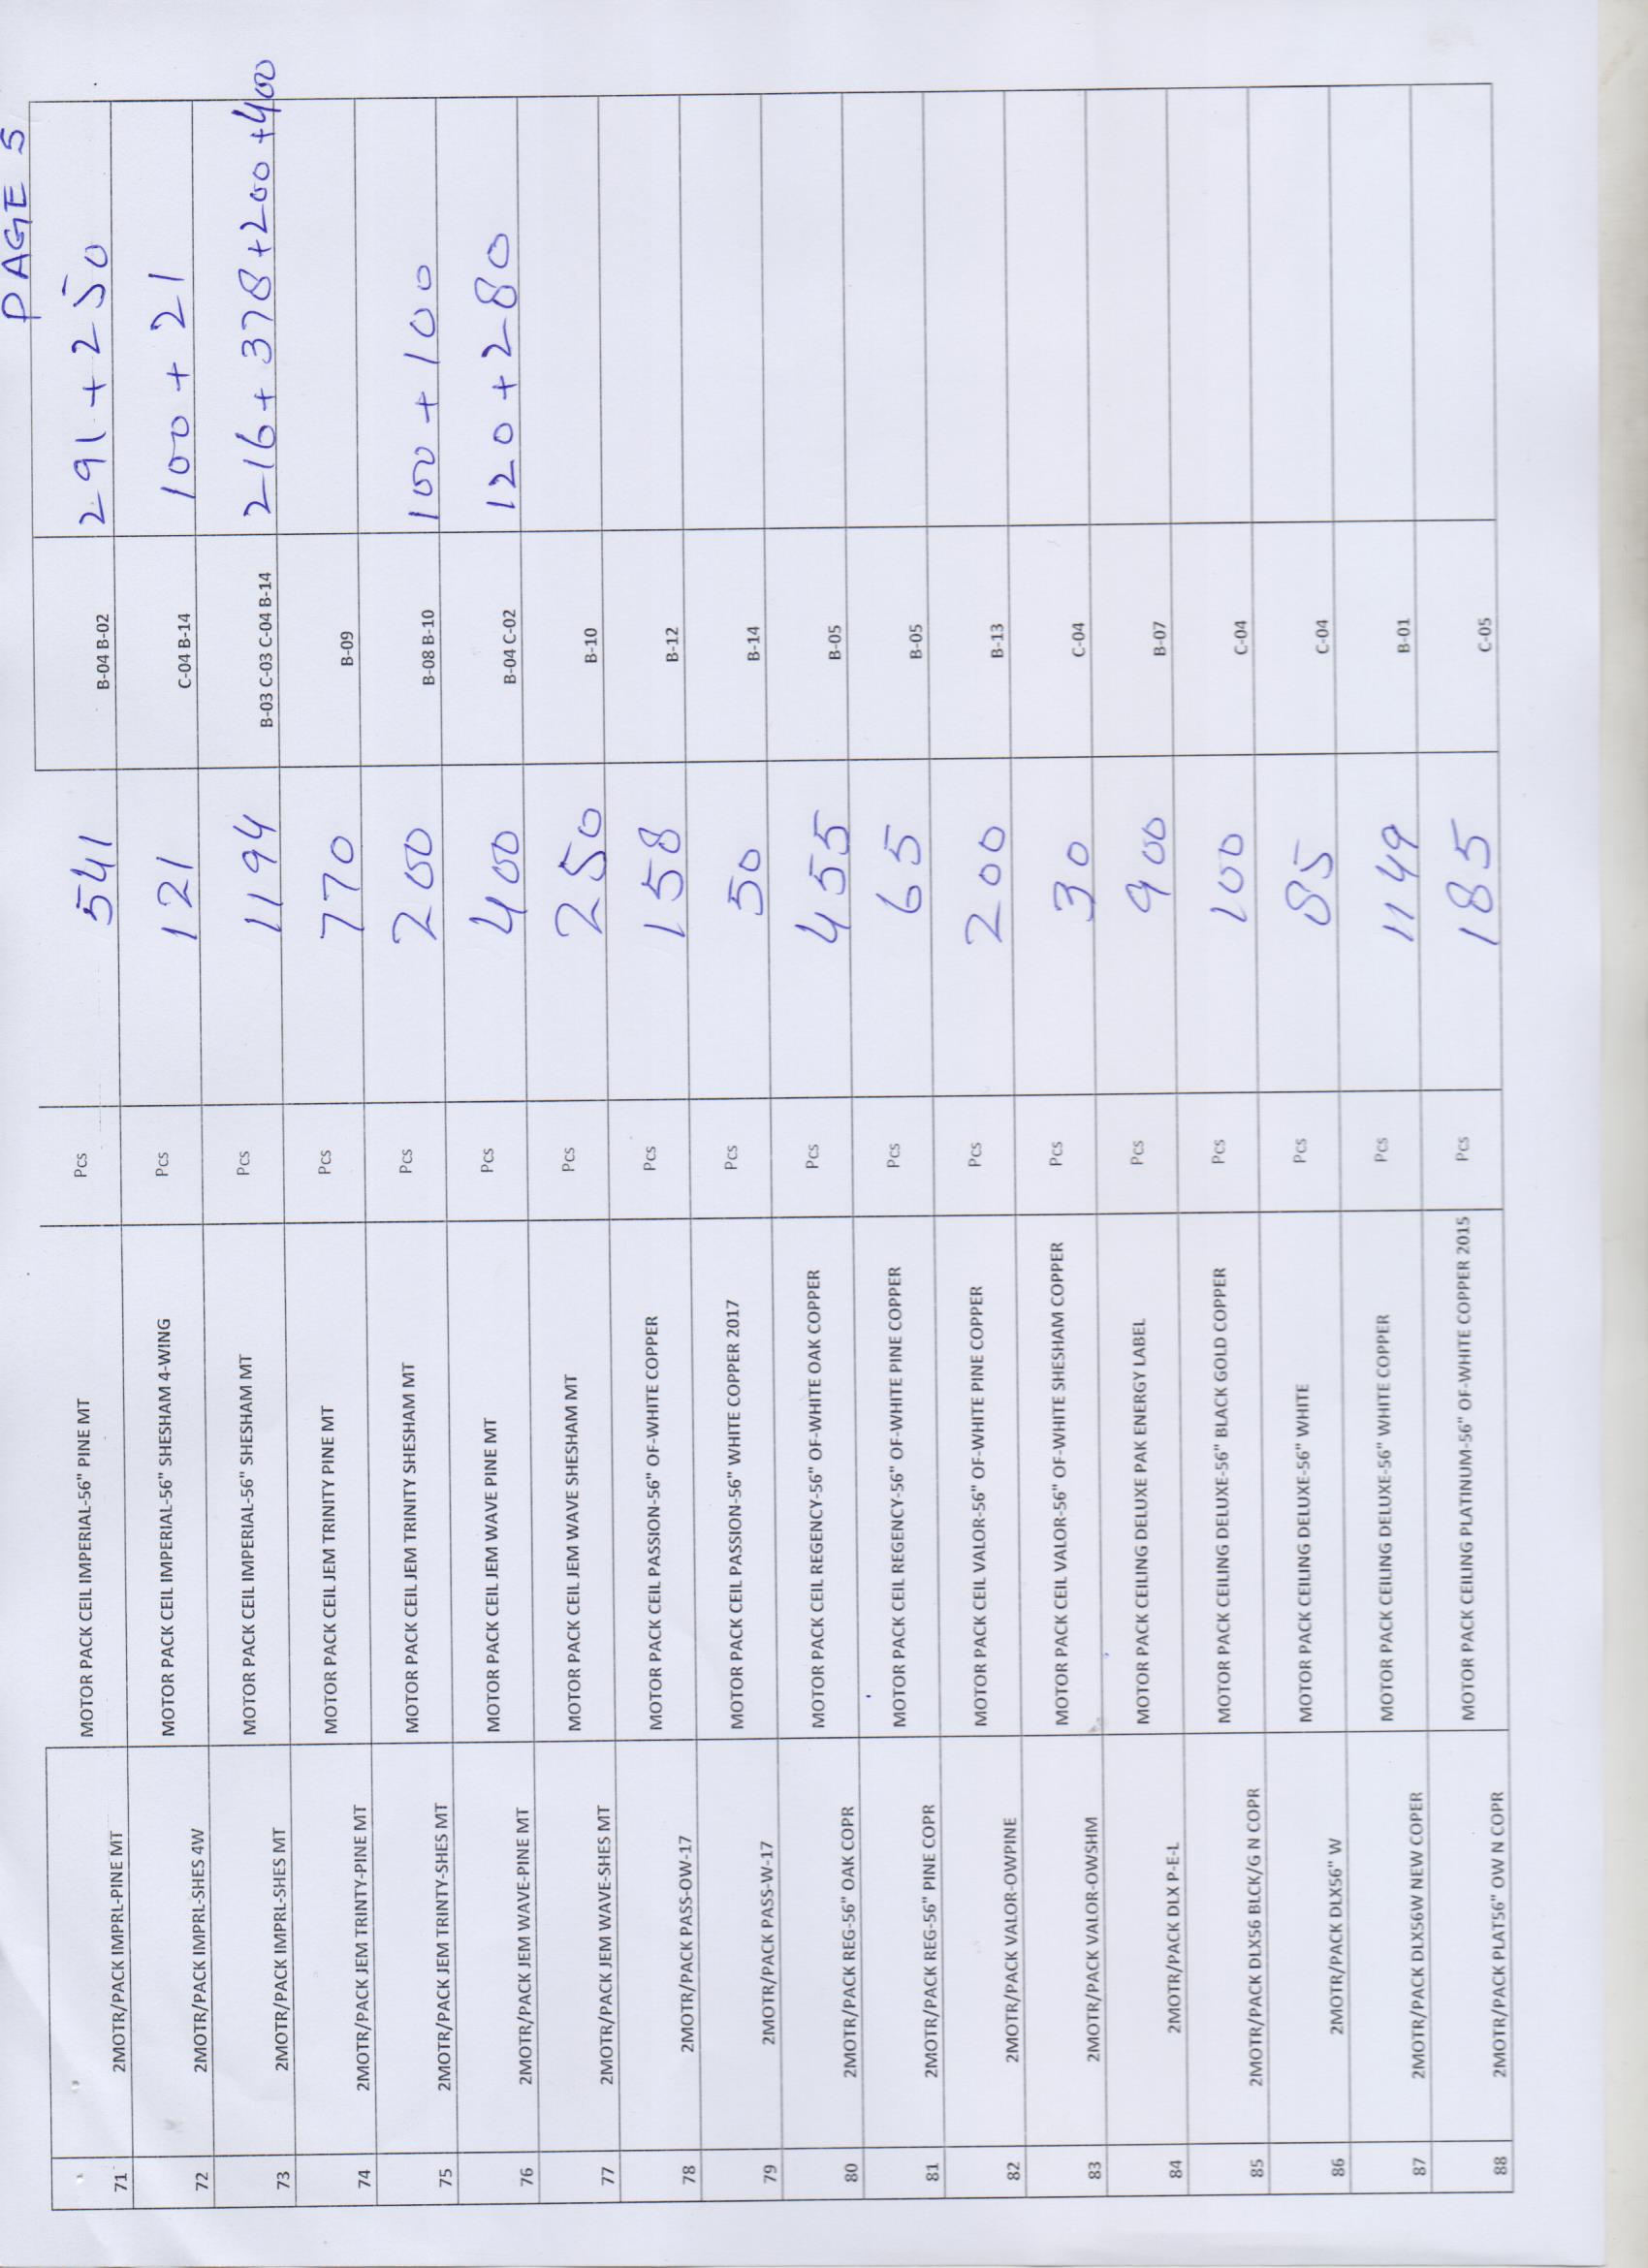 PAGE 5
71 2MOTR/PACK IMPRL-PINE MT MOTOR PACK CEIL IMPERIAL-56" PINE MT Pcs 541 B-04 B-02 291 + 250
72 2MOTR/PACK IMPRL-SHES 4W MOTOR PACK CEIL IMPERIAL-56" SHESHAM 4-WING Pcs 121 C-04 B-14 100 + 21
73 2MOTR/PACK IMPRL-SHES MT MOTOR PACK CEIL IMPERIAL-56" SHESHAM MT Pcs 1194 B-03 C-03 C-04 B-14 216 + 378 + 200 + 400
74 2MOTR/PACK JEM TRINTY-PINE MT MOTOR PACK CEIL JEM TRINITY PINE MT Pcs 770 B-09
75 2MOTR/PACK JEM TRINTY-SHES MT MOTOR PACK CEIL JEM TRINITY SHESHAM MT Pcs 200 B-08 B-10 100 + 100
76 2MOTR/PACK JEM WAVE-PINE MT MOTOR PACK CEIL JEM WAVE PINE MT Pcs 400 B-04 C-02 120 + 280
77 2MOTR/PACK JEM WAVE-SHES MT MOTOR PACK CEIL JEM WAVE SHESHAM MT Pcs 250 B-10
78 2MOTR/PACK PASS-OW-17 MOTOR PACK CEIL PASSION-56" OF-WHITE COPPER Pcs 158 B-12
79 2MOTR/PACK PASS-W-17 MOTOR PACK CEIL PASSION-56" WHITE COPPER 2017 Pcs 50 B-14
80 2MOTR/PACK REG-56" OAK COPR MOTOR PACK CEIL REGENCY-56" OF-WHITE OAK COPPER Pcs 455 B-05
81 2MOTR/PACK REG-56" PINE COPR MOTOR PACK CEIL REGENCY-56" OF-WHITE PINE COPPER Pcs 65 B-05
82 2MOTR/PACK VALOR-OWPINE MOTOR PACK CEIL VALOR-56" OF-WHITE PINE COPPER Pcs 200 B-13
83 2MOTR/PACK VALOR-OWSHM MOTOR PACK CEIL VALOR-56" OF-WHITE SHESHAM COPPER Pcs 30 C-04
84 2MOTR/PACK DLX P-E-L MOTOR PACK CEILING DELUXE PAK ENERGY LABEL Pcs 900 B-07
85 2MOTR/PACK DLX56 BLCK/G N COPR MOTOR PACK CEILING DELUXE-56" BLACK GOLD COPPER Pcs 100 C-04
86 2MOTR/PACK DLX56" W MOTOR PACK CEILING DELUXE-56" WHITE Pcs 85 C-04
87 2MOTR/PACK DLX56W NEW COPER MOTOR PACK CEILING DELUXE-56" WHITE COPPER Pcs 1149 B-01
88 2MOTR/PACK PLAT56" OW N COPR MOTOR PACK CEILING PLATINUM-56" OF-WHITE COPPER 2015 Pcs 185 C-05